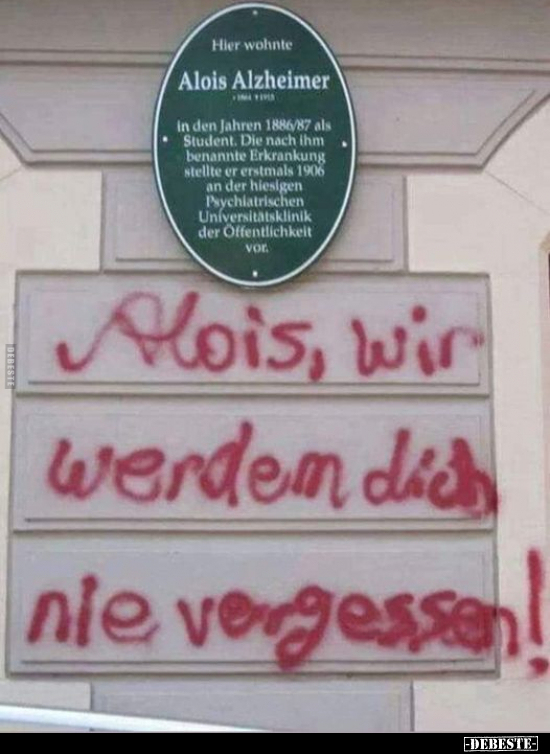 Hier wohnte
Alois Alzheimer
* 1864 † 1915
in den Jahren 1886/87 als
Student. Die nach ihm
benannte Erkrankung
stellte er erstmals 1906
an der hiesigen
Psychiatrischen
Universitätsklinik
der Öffentlichkeit
vor.
Alois, wir
werden dich
nie vergessen!
DEBESTE
-DEBESTE-